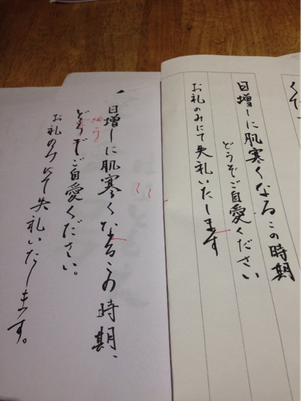 日増しに肌寒くなるこの時期
どうぞご自愛ください
お礼のみにて失礼いたします
日増しに肌寒くなるこの時期、
どうぞご自愛ください。
お礼のみにて失礼いたします。